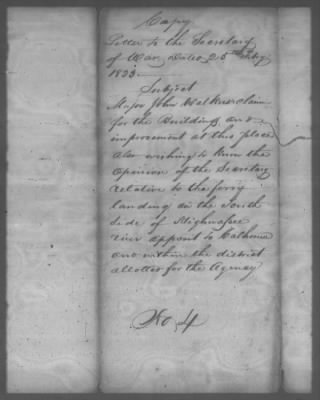 Copy
Letter to the Secretary
of War Dated 25 Feby
1833
Subject
Major John Walkers claim
for the Buildings and
improvement at this place
Also wishing to know the
opinion of the Secretary
relative to the ferry
landing on the South
side of Highwassee
river apposit to Calhoun
and within the district
allotted for the Agency
No. 4